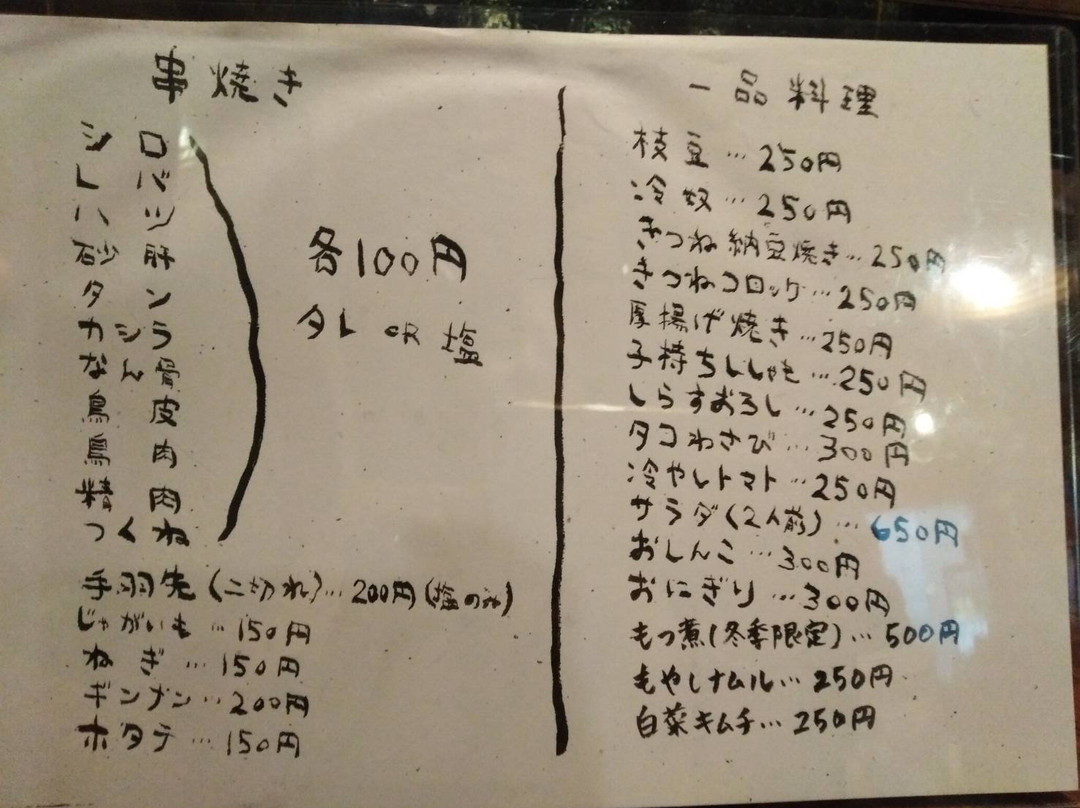 串焼き
シロ
レバ
ハツ
砂肝
タン
カシラ
なん骨
鳥皮
鳥肉
精肉
つくね
各100円
タレ OR 塩
手羽先(二切れ)…200円(塩のみ)
じゃがいも…150円
ねぎ…150円
ギンナン…200円
ホタテ…150円
一品料理
枝豆…250円
冷奴…250円
きつね納豆焼き…250円
きつねコロッケ…250円
厚揚げ焼き…250円
子持ちししゃも…250円
しらすおろし…250円
タコわさび…300円
冷やしトマト…250円
サラダ(2人前)…650円
おしんこ…300円
おにぎり…300円
もつ煮(冬季限定)…500円
もやしナムル…250円
白菜キムチ…250円